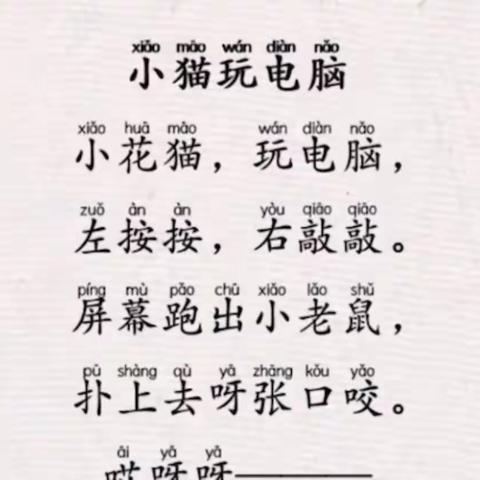 xiǎo māo wán diàn nǎo
小猫玩电脑
xiǎo huā māo wán diàn nǎo
小花猫，玩电脑，
zuǒ àn àn yòu qiāo qiāo
左按按，右敲敲。
píng mù pǎo chū xiǎo lǎo shǔ
屏幕跑出小老鼠，
pū shàng qù yā zhāng kǒu yǎo
扑上去呀张口咬。
āi yā yā
哎呀呀————